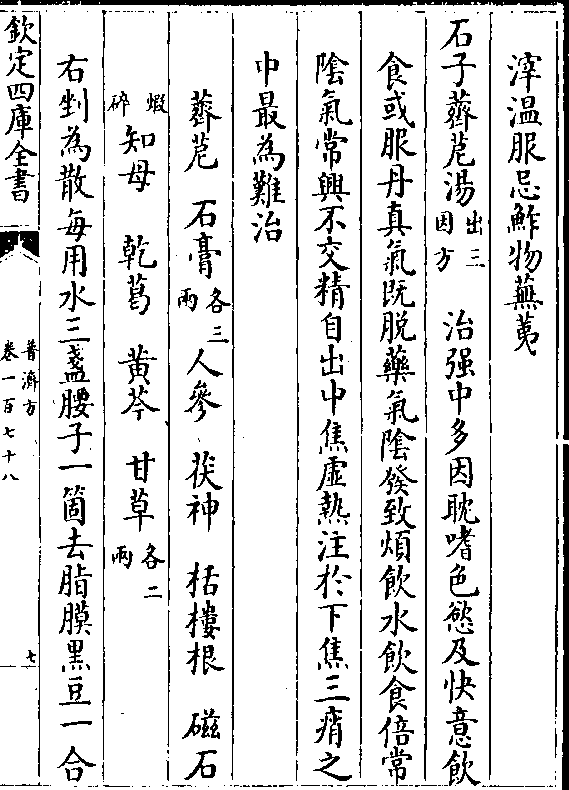 滓温服忌鮓物蕪荑
石子薺苨湯出三因方　治强中多因耽嗜色慾及快意飲
食或服丹真氣既脱藥氣陰發致煩飲水飲食倍常
陰氣常興不交精自出中焦虛熱注於下焦三痟之
中最為難治
薺苨　石膏各三兩　人參　茯神　栝樓根　磁石
煆碎　知母　乾葛　黄芩　甘草各二兩
右剉為散每用水三盞腰子一箇去脂膜黑豆一合
欽定四庫全書
普濟方
卷一百七十八
七